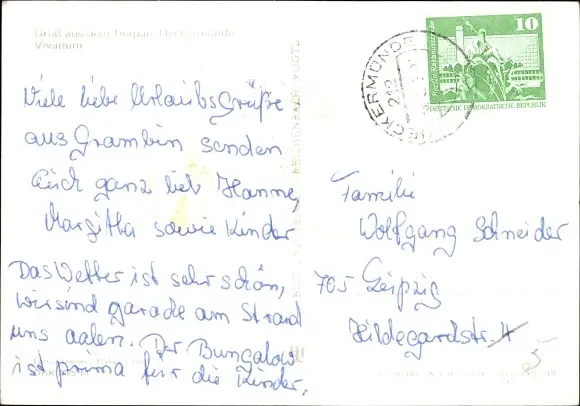 Gruß aus dem Tierpark Ueckermünde
Vivarium
Viele liebe Urlaubsgrüße
aus Grambin senden
Euch ganz lieb Hanne,
Margitta sowie Kinder
Das Wetter ist sehr schön,
wir sind garade am Strand
uns aalen. Der Bungalow
ist prima für die Kinder,
REICHENBACH VOGTL
UECKERMÜNDE
212
10
DEUTSCHE DEMOKRATISCHE REPUBLIK
Familie
Wolfgang Schneider
705 Leipzig
Hildegardstr. 4
5